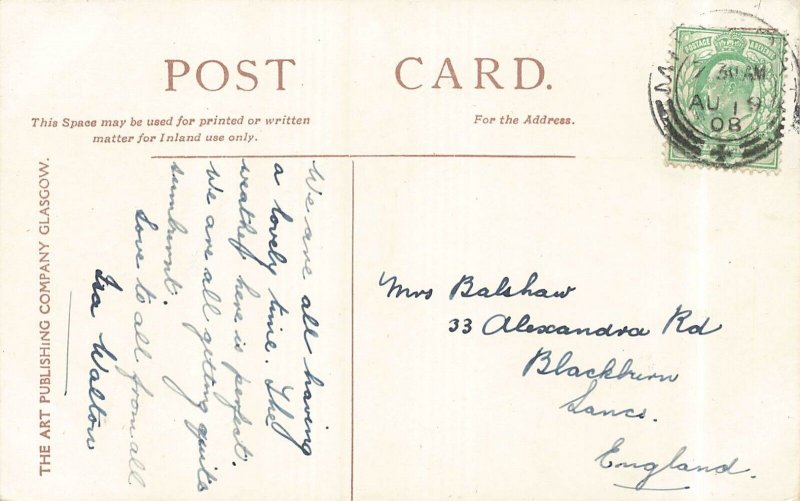 POST CARD.
This Space may be used for printed or written
matter for Inland use only.
For the Address.
THE ART PUBLISHING COMPANY GLASGOW.
We are all having
a lovely time. The
weather here is perfect.
We are all getting quite
sunburnt.
Love to all from all
Isa Walton
Mrs Balshaw
33 Alexandra Rd
Blackburn
Lancs.
England.
POSTAGE
7.30 AM
AU 19
08